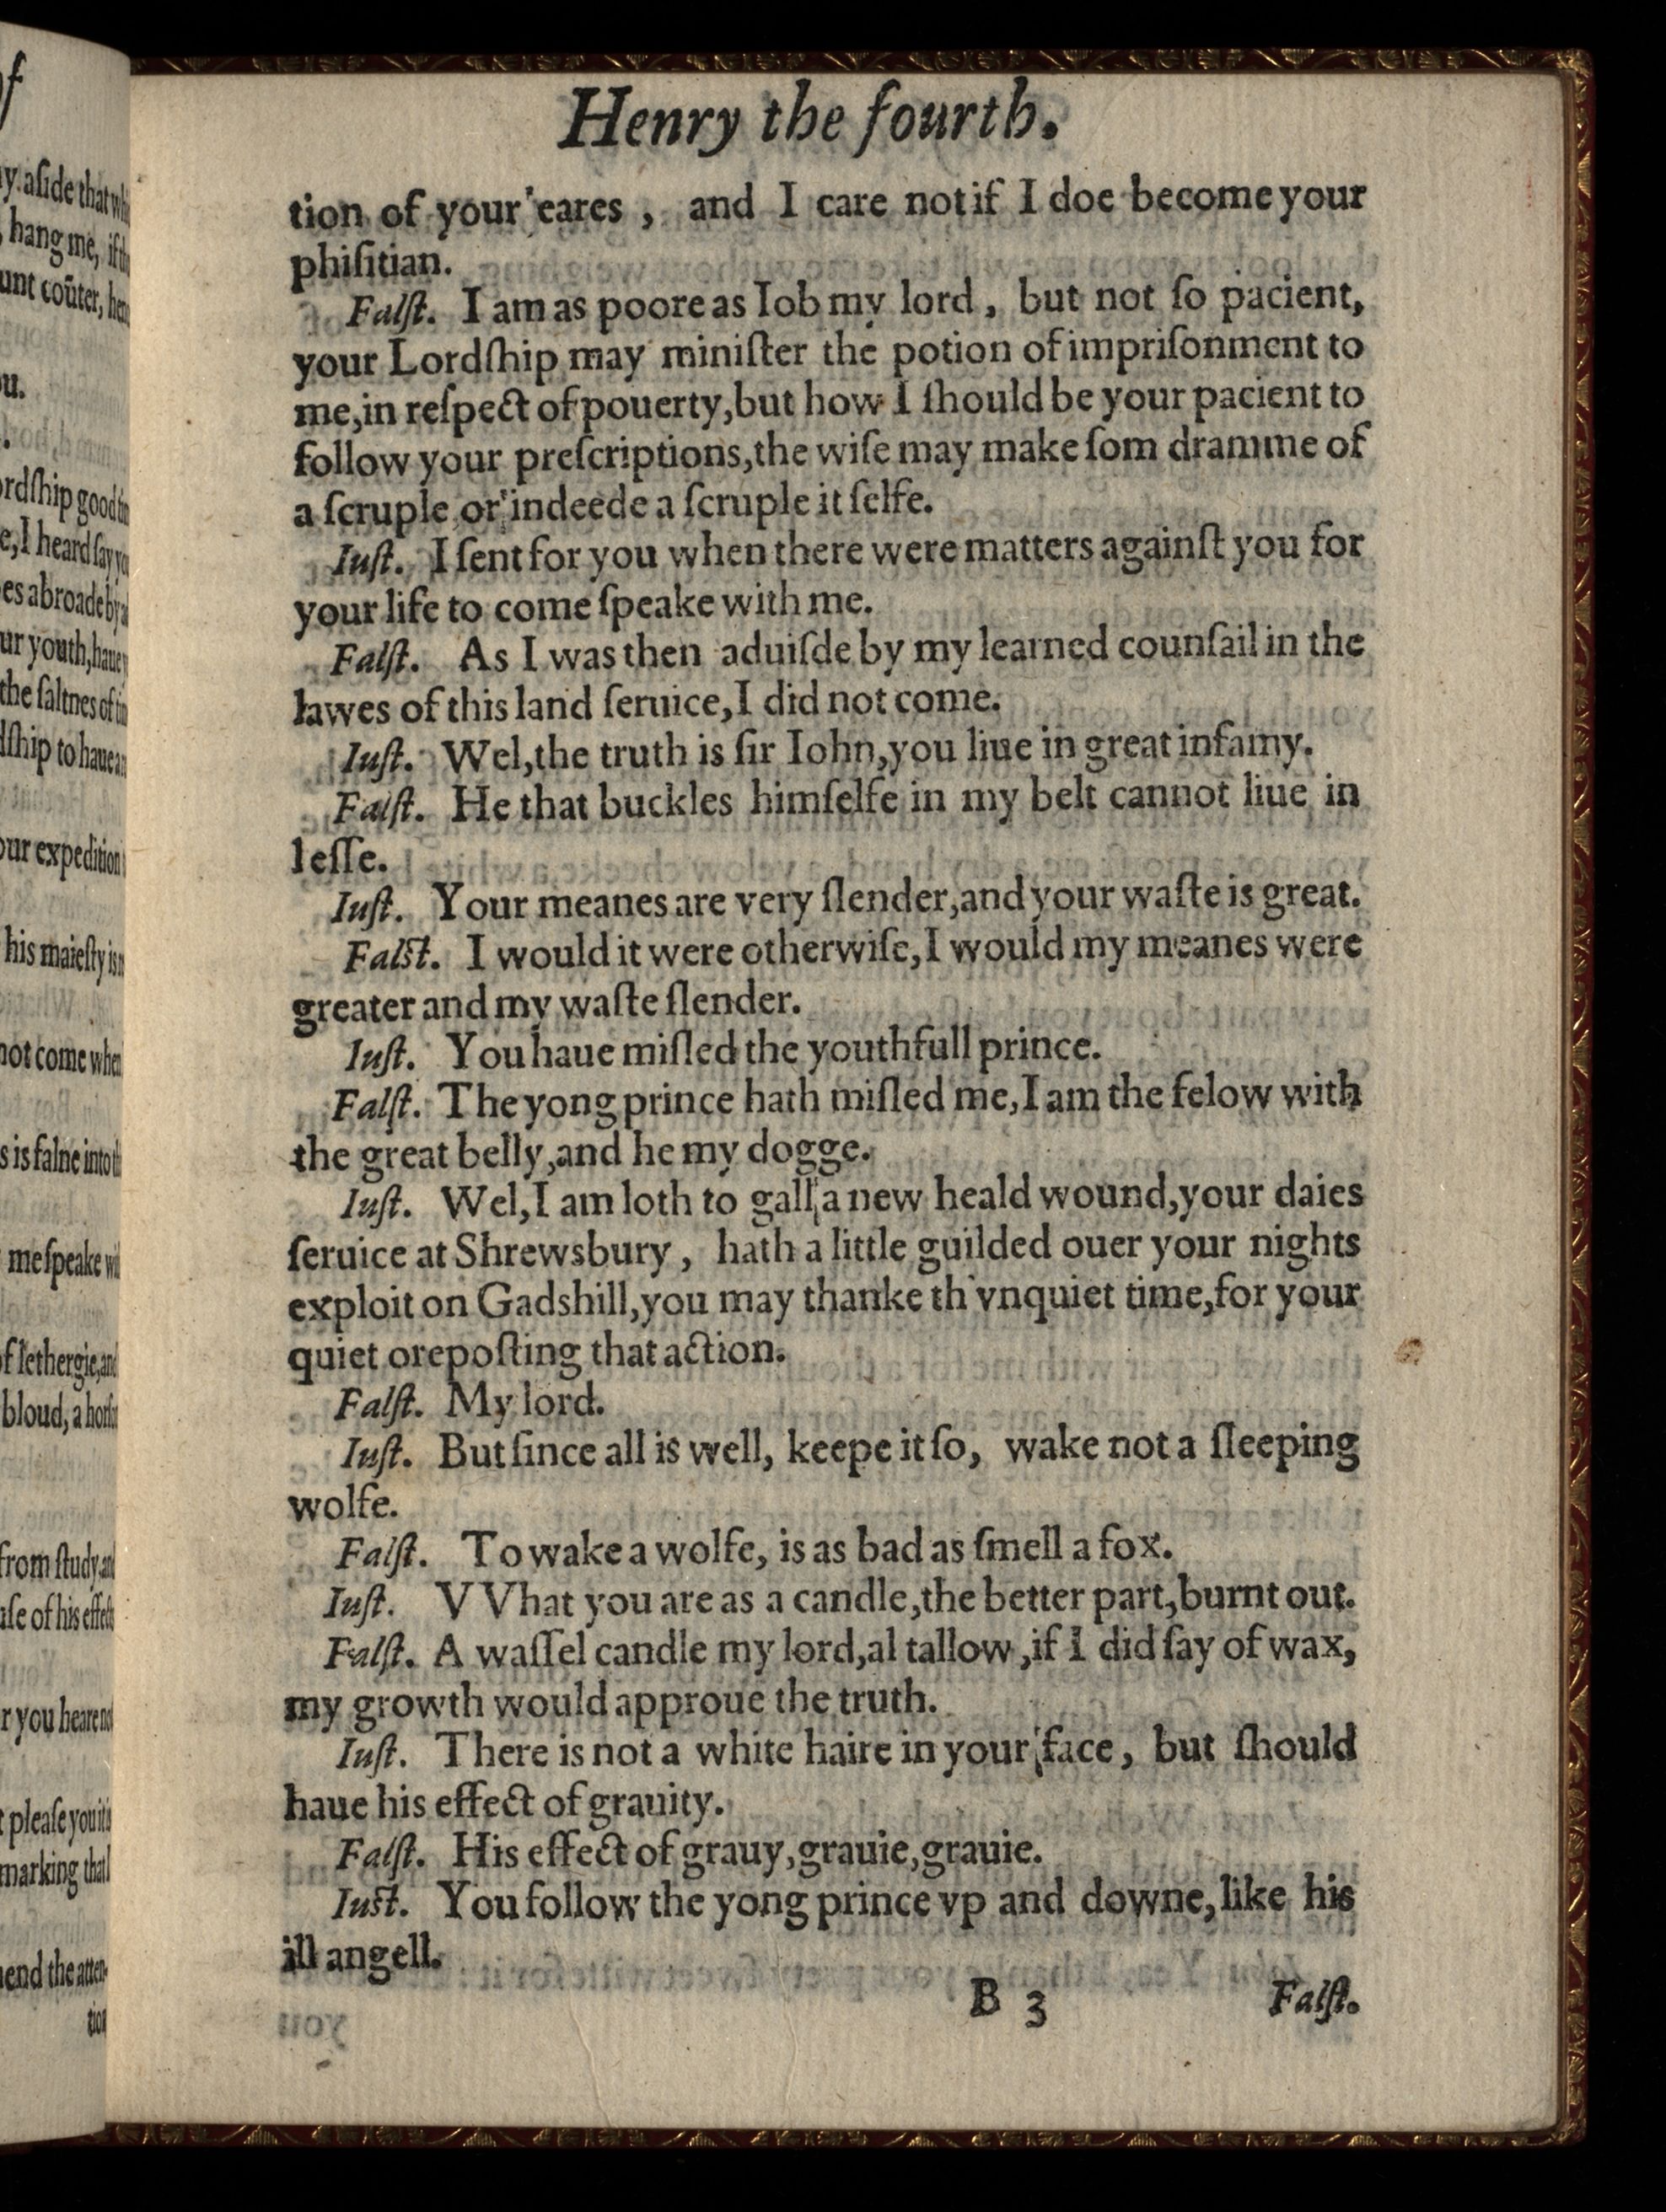 Henry the fourth.
tion of your eares , and I care not if I doe become your
phiſitian.
Falſt. I am as poore as Iob my lord, but not ſo pacient,
your Lordſhip may miniſter the potion of impriſonment to
me,in reſpect of pouerty,but how I ſhould be your pacient to
follow your preſcriptions,the wiſe may make ſom dramme of
a ſcruple or indeede a ſcruple it ſelfe.
Iuſt. I ſent for you when there were matters againſt you for
your life to come ſpeake with me.
Falſt. As I was then aduiſde by my learned counſail in the
lawes of this land ſeruice,I did not come.
Iuſt. Wel,the truth is ſir Iohn,you liue in great infamy.
Falſt. He that buckles himſelfe in my belt cannot liue in
leſſe.
Iuſt. Your meanes are very ſlender,and your waſte is great.
Falſt. I would it were otherwiſe,I would my meanes were
greater and my waſte ſlender.
Iuſt. You haue miſled the youthfull prince.
Falſt. The yong prince hath miſled me,I am the felow with
the great belly,and he my dogge.
Iuſt. Wel,I am loth to gall a new heald wound,your daies
ſeruice at Shrewsbury , hath a little guilded ouer your nights
exploit on Gadshill,you may thanke th'vnquiet time,for your
quiet orepoſting that action.
Falſt. My lord.
Iuſt. But ſince all is well, keepe it ſo, wake not a ſleeping
wolfe.
Falſt. To wake a wolfe, is as bad as ſmell a fox.
Iuſt. VVhat you are as a candle,the better part,burnt out.
Falſt. A waſſel candle my lord,al tallow,if I did ſay of wax,
my growth would approue the truth.
Iuſt. There is not a white haire in your face, but ſhould
haue his effect of grauity.
Falſt. His effect of grauy,grauie,grauie.
Iuſt. You follow the yong prince vp and downe,like his
ill angell.
B 3 Falſt.